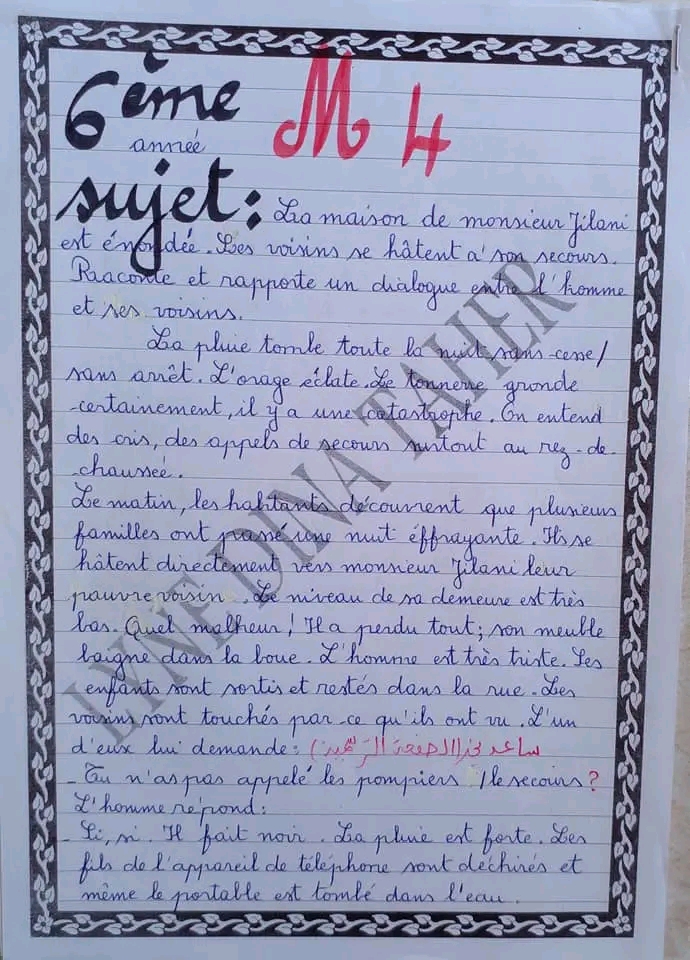 6ème
année
M 4
sujet: La maison de monsieur Jilani
est énondée. Les voisins se hâtent a' son secours.
Raaconte et rapporte un dialogue entre l'homme
et ses voisins.
La pluie tombe toute la nuit sans cesse/
sans arrêt. L'orage éclate. Le tonnerre gronde
certainement, il y a une catastrophe. On entend
des cris, des appels de secours surtout au rez-de-
chaussée.
Le matin, les habitants découvrent que plusieurs
familles ont passé une nuit éffrayante. Ils se
hâtent directement vers monsieur Jilani leur
pauvre voisin. Le niveau de sa demeure est très
bas. Quel malheur! Il a perdu tout; son meuble
baigne dans la boue. L'homme est très triste. Ses
enfants sont sortis et restés dans la rue. Les
voisins sont touchés par ce qu'ils ont vu. L'un
d'eux lui demande:
- Tu n'as pas appelé les pompiers /le secours?
L'homme répond:
- Si, si. Il fait noir. La pluie est forte. Les
fils de l'appareil de téléphone sont déchirés et
même le portable est tombé dans l'eau.
LYNE DINA TAHER